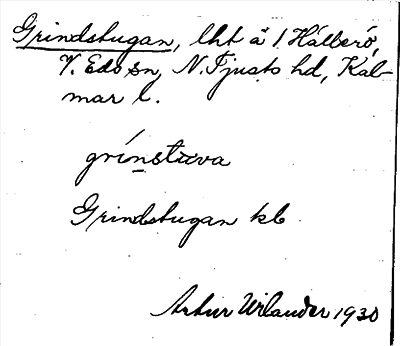 Grindstugan, lht å 1 Hålberö,
V. Eds sn, N. Tjusts hd, Kal-
mar l.
grínstuva
Grindstugan kb
Artur Wilander 1930